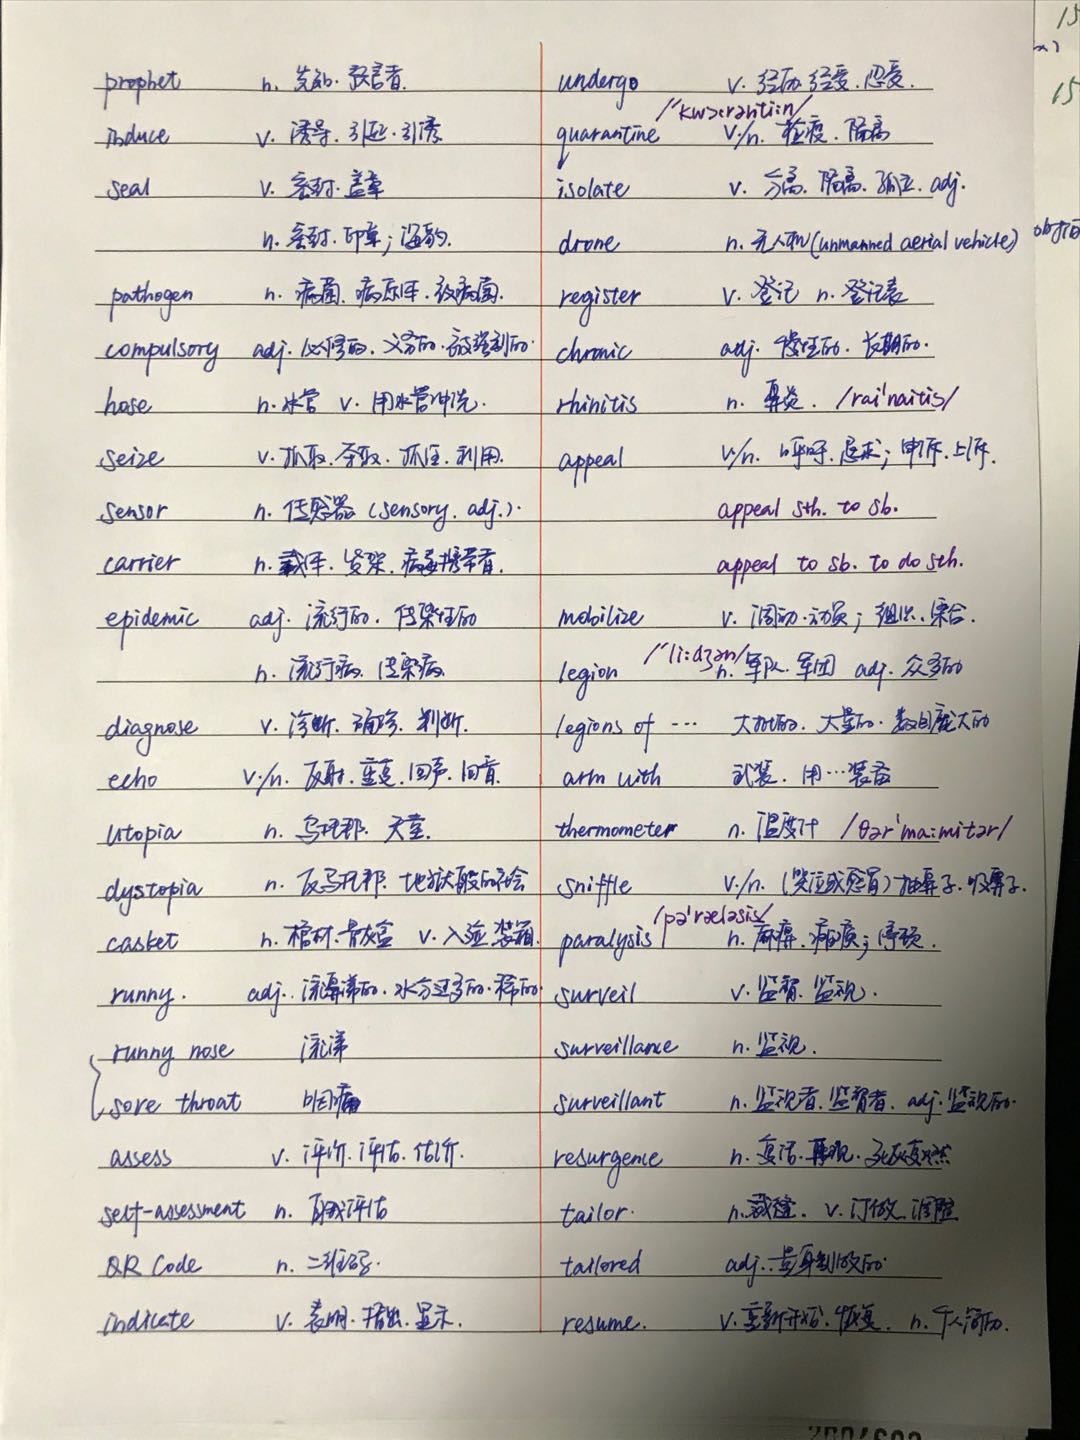 prophet n. 先知. 预言者.
induce v. 诱导. 引起. 引诱
seal v. 密封. 盖章
n. 密封. 印章; 海豹.
pathogen n. 病菌. 病原体. 致病菌.
compulsory adj. 必修的. 义务的. 被强制的.
hose n. 水管 v. 用水管冲洗.
seize v. 抓取. 夺取. 抓住. 利用.
sensor n. 传感器 (sensory. adj.).
carrier n. 载体. 货架. 病毒携带者.
epidemic adj. 流行的. 传染性的
n. 流行病. 传染病.
diagnose v. 诊断. 确诊. 判断.
echo v./n. 反射. 重复. 回声. 回音
utopia n. 乌托邦. 天堂.
dystopia n. 反乌托邦. 地狱般的社会
casket n. 棺材. 骨灰盒 v. 入殓. 装箱.
runny. adj. 流鼻涕的. 水分过多的. 稀的.
runny nose 流涕
sore throat 咽痛
assess v. 评价. 评估. 估价.
self-assessment n. 自我评估
QR Code n. 二维码.
indicate v. 表明. 指出. 显示.
undergo v. 经历. 经受. 忍受.
/'kwɔːrəntiːn/
quarantine v./n. 检疫. 隔离
isolate v. 分离. 隔离. 孤立. adj.
drone n. 无人机 (unmanned aerial vehicle)
register v. 登记 n. 登记表
chronic adj. 慢性的. 长期的.
rhinitis n. 鼻炎. /rai'naitis/
appeal v./n. 呼吁. 恳求; 申诉. 上诉.
appeal sth. to sb.
appeal to sb. to do sth.
mobilize v. 调动. 动员; 组织. 集合.
/'liːdʒən/
legion n. 军队. 军团 adj. 众多的
legions of … 大批的. 大量的. 数目庞大的
arm with 武装. 用…装备
thermometer n. 温度计 /θər'maːmitər/
sniffle v./n. (哭泣或感冒) 抽鼻子. 吸鼻子.
/pə'ræləsis/
paralysis n. 麻痹. 瘫痪; 停顿.
surveil v. 监督. 监视.
surveillance n. 监视.
surveillant n. 监视者. 监督者. adj. 监视的.
resurgence n. 复活. 再现. 死灰复燃
tailor. n. 裁缝. v. 订做. 调整
tailored adj. 量身制做的.
resume. v. 重新开始. 恢复. n. 个人简历.
15
15